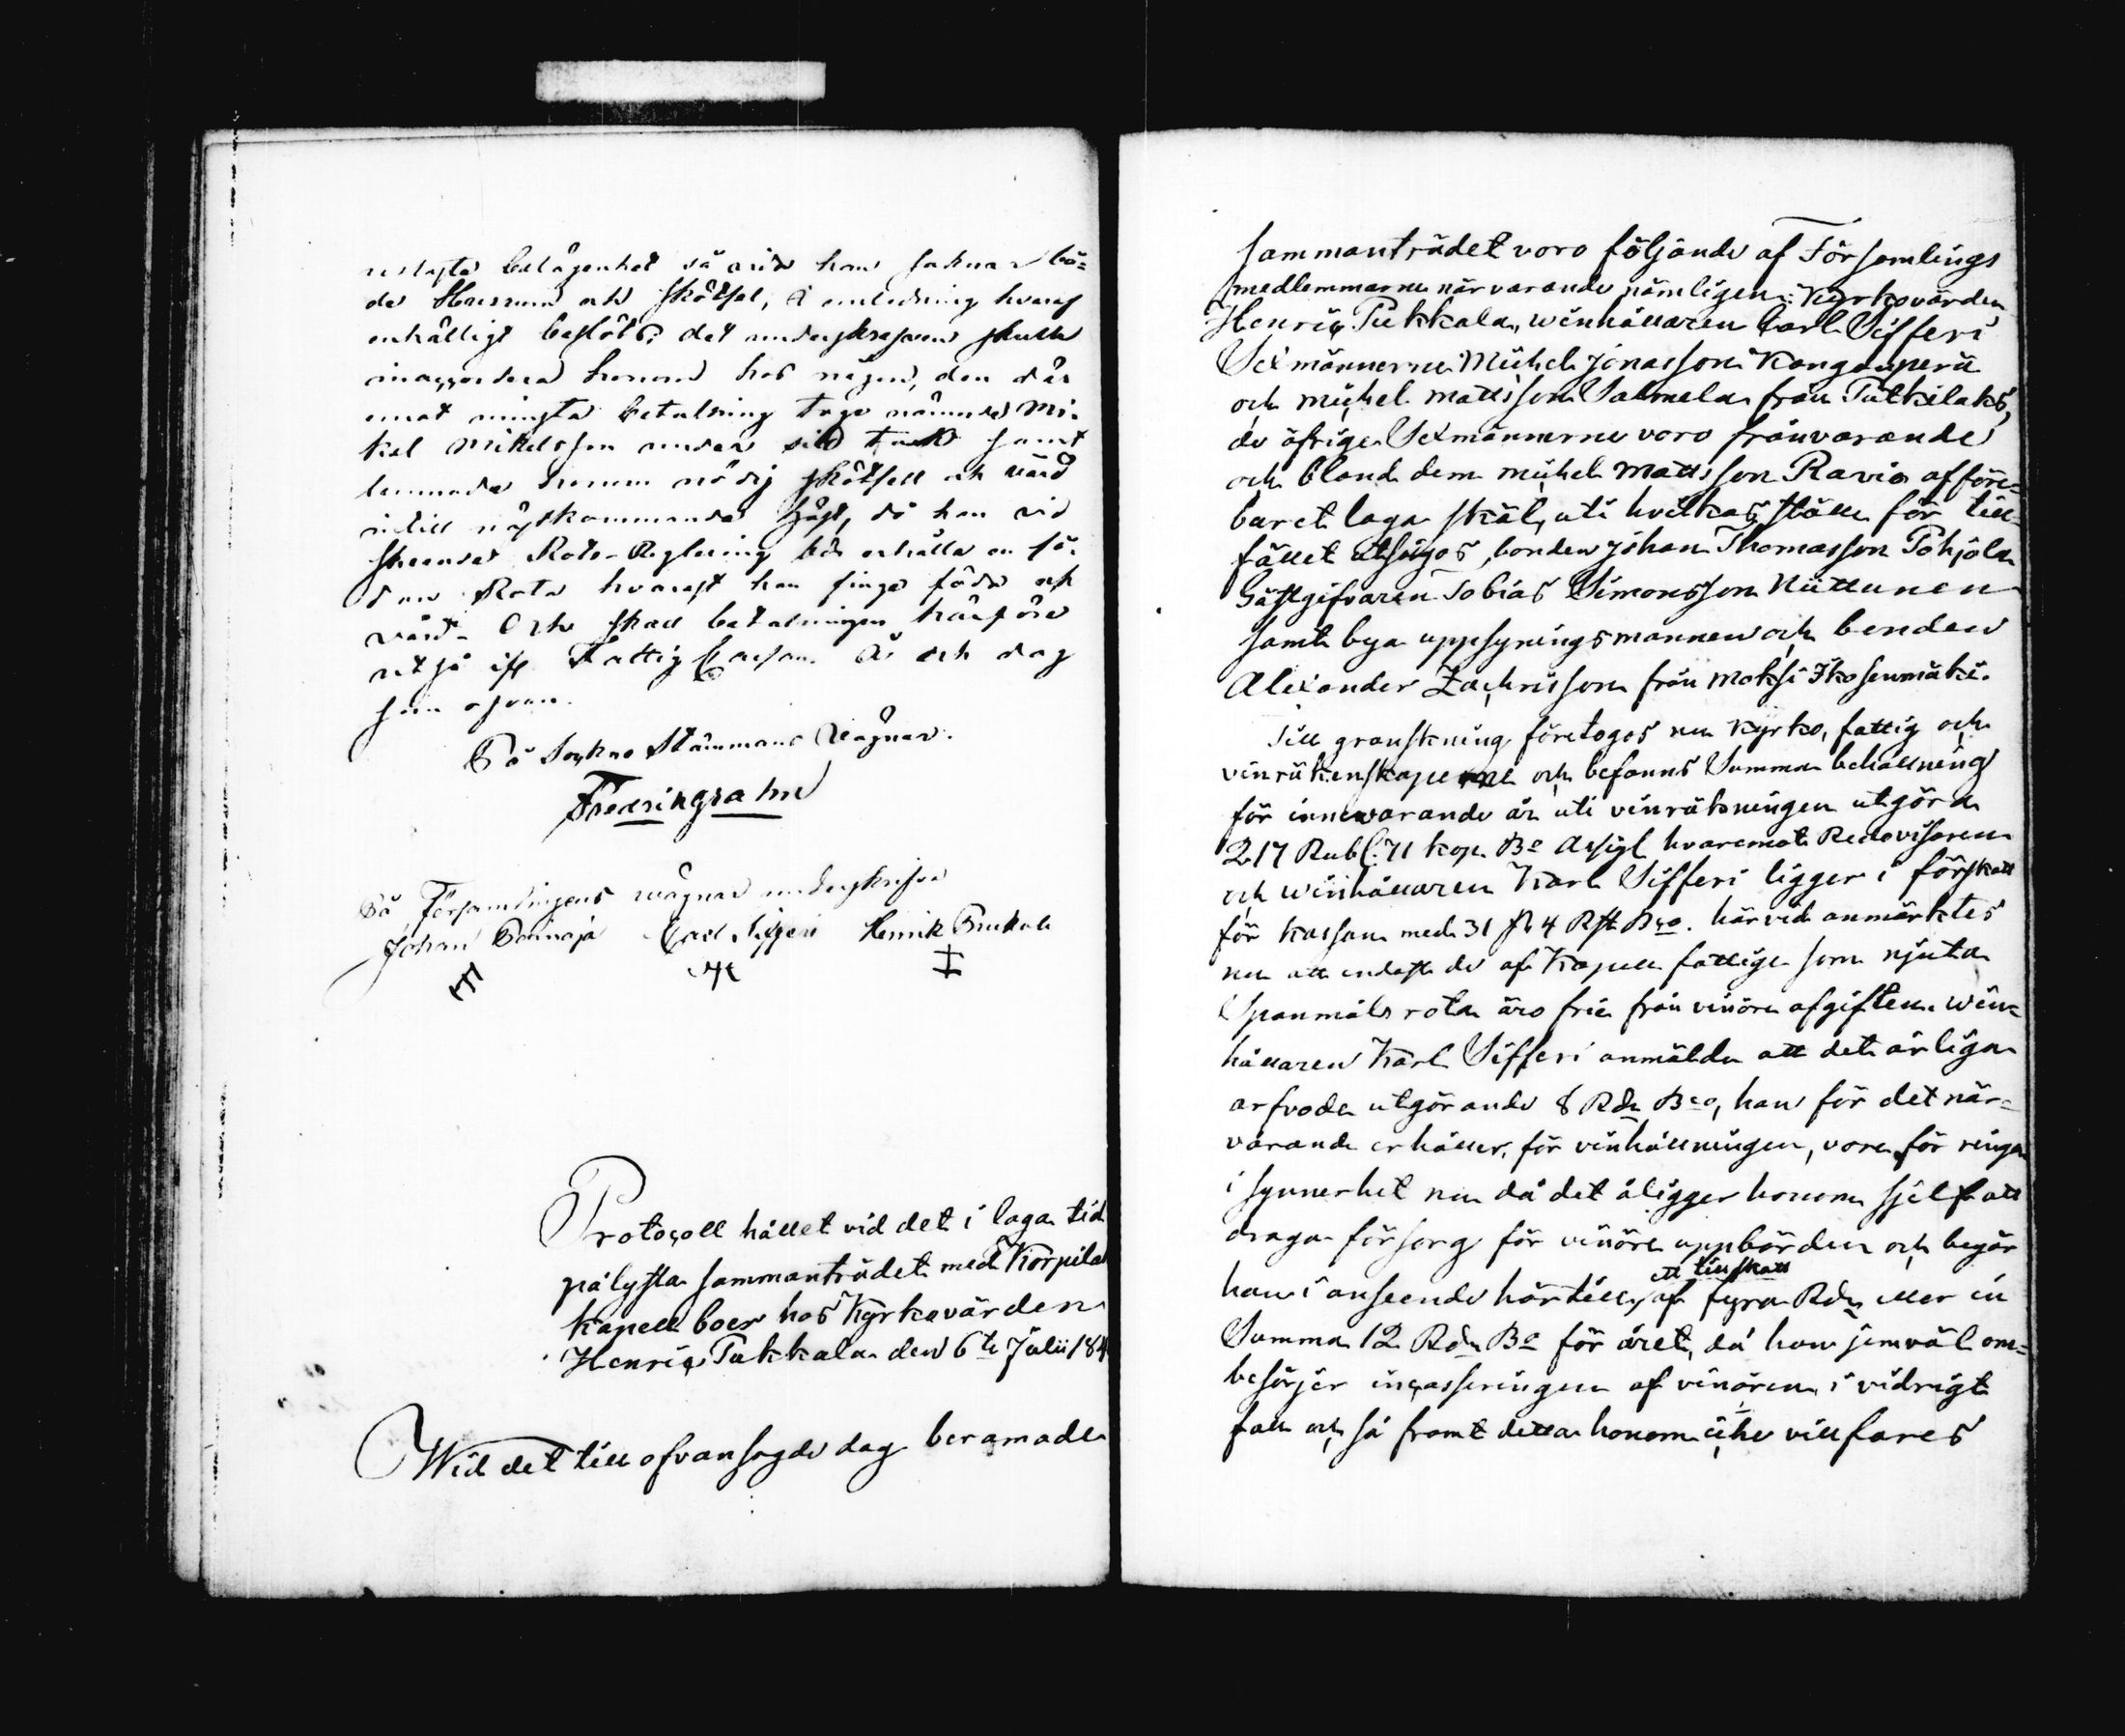 belägenhet så vida han saknar bå-
de Husrum och skötsel, i anledning hvaraf
enhälligt beslöts: det undertecknad skulle
inaccordera honom hos någon, den där
emot minsta betalning toge nämnde Mi-
kel Mikelsson under sitt tak samt
lemnade honom nödig skötsell och vård
intill nästkommande höst, då han vid
skeende Rote-Reglering bör erhålla en så-
dan Rota hvarest han finge föda och
vård. Och skall betalningen härföre
utgå ifr Fattig Cassan. År och dag
som ofvan.
På Sockne Stämmans vägnar.
Fredrik Ingrahn
På Församlingens vägnar underskrifva
Johan Carl Sifferi Henrik Pukala
Protocoll hållet vid det i laga tid
pålysta sammanträdet med Korpilax
Kapell boer hos Kyrkovärden
Henric Pukkala den 6te Julii 184
Wid det till ofvansagde dag beramade
sammanträdet voro följande af Församlings
medlemmarne närvarande nämligen: Kyrkovärden
Henric Pukkala, winhållaren Carl Sifferi
Sexmännerne Michel Jonasson Kangasperä
och Michel Mattsson Salmela från Putkilaks,
de öfrige Sexmännerne voro frånvarande
och bland dem Michel Mattsson Ravio af före-
buret laga skäl, uti hvilkas ställe för till-
fället utsågos, bonden Johan Thomasson Pohjola
Gästgifvaren Tobias Simonsson Niittunen
samt bya uppsyningsmannen och bonden
Alexander Zachrisson från Moksi Ikosenmäki.
Till granskning företogos nu Kyrko, fattig och
vinräkenskaperne och befanns Summa behållning
för innevarande år uti vinräkningen utgöra
217 Rubl: 71 kop. Bo Assigt hvaremot Redovisaren
och winhållaren Karl Sifferi ligger i förskott
för kassan med 31 R 4 Rst Bco. härvid anmärktes
nu att endast de af Kapell fattige som njuta
Spanmåls rota äro frie från vinöre afgiften. Win-
hållaren Karl Sifferi anmälde att det årliga
arfvode utgörande 8 Rdr Bco, han för det när-
varande erhåller, för vinhållningen, vore för ringa
i synnerhet nu då det åligger honom sjelf att
draga försorg för vinöre uppbörden och begär
han i anseende härtill, ett tillskott af fyra Rdr eller in
Summa 12 Rdr Bo för året, då han jemväl om-
besörjer incasseringen af vinören, i vidrigt
fall och så framt detta honom icke villfares